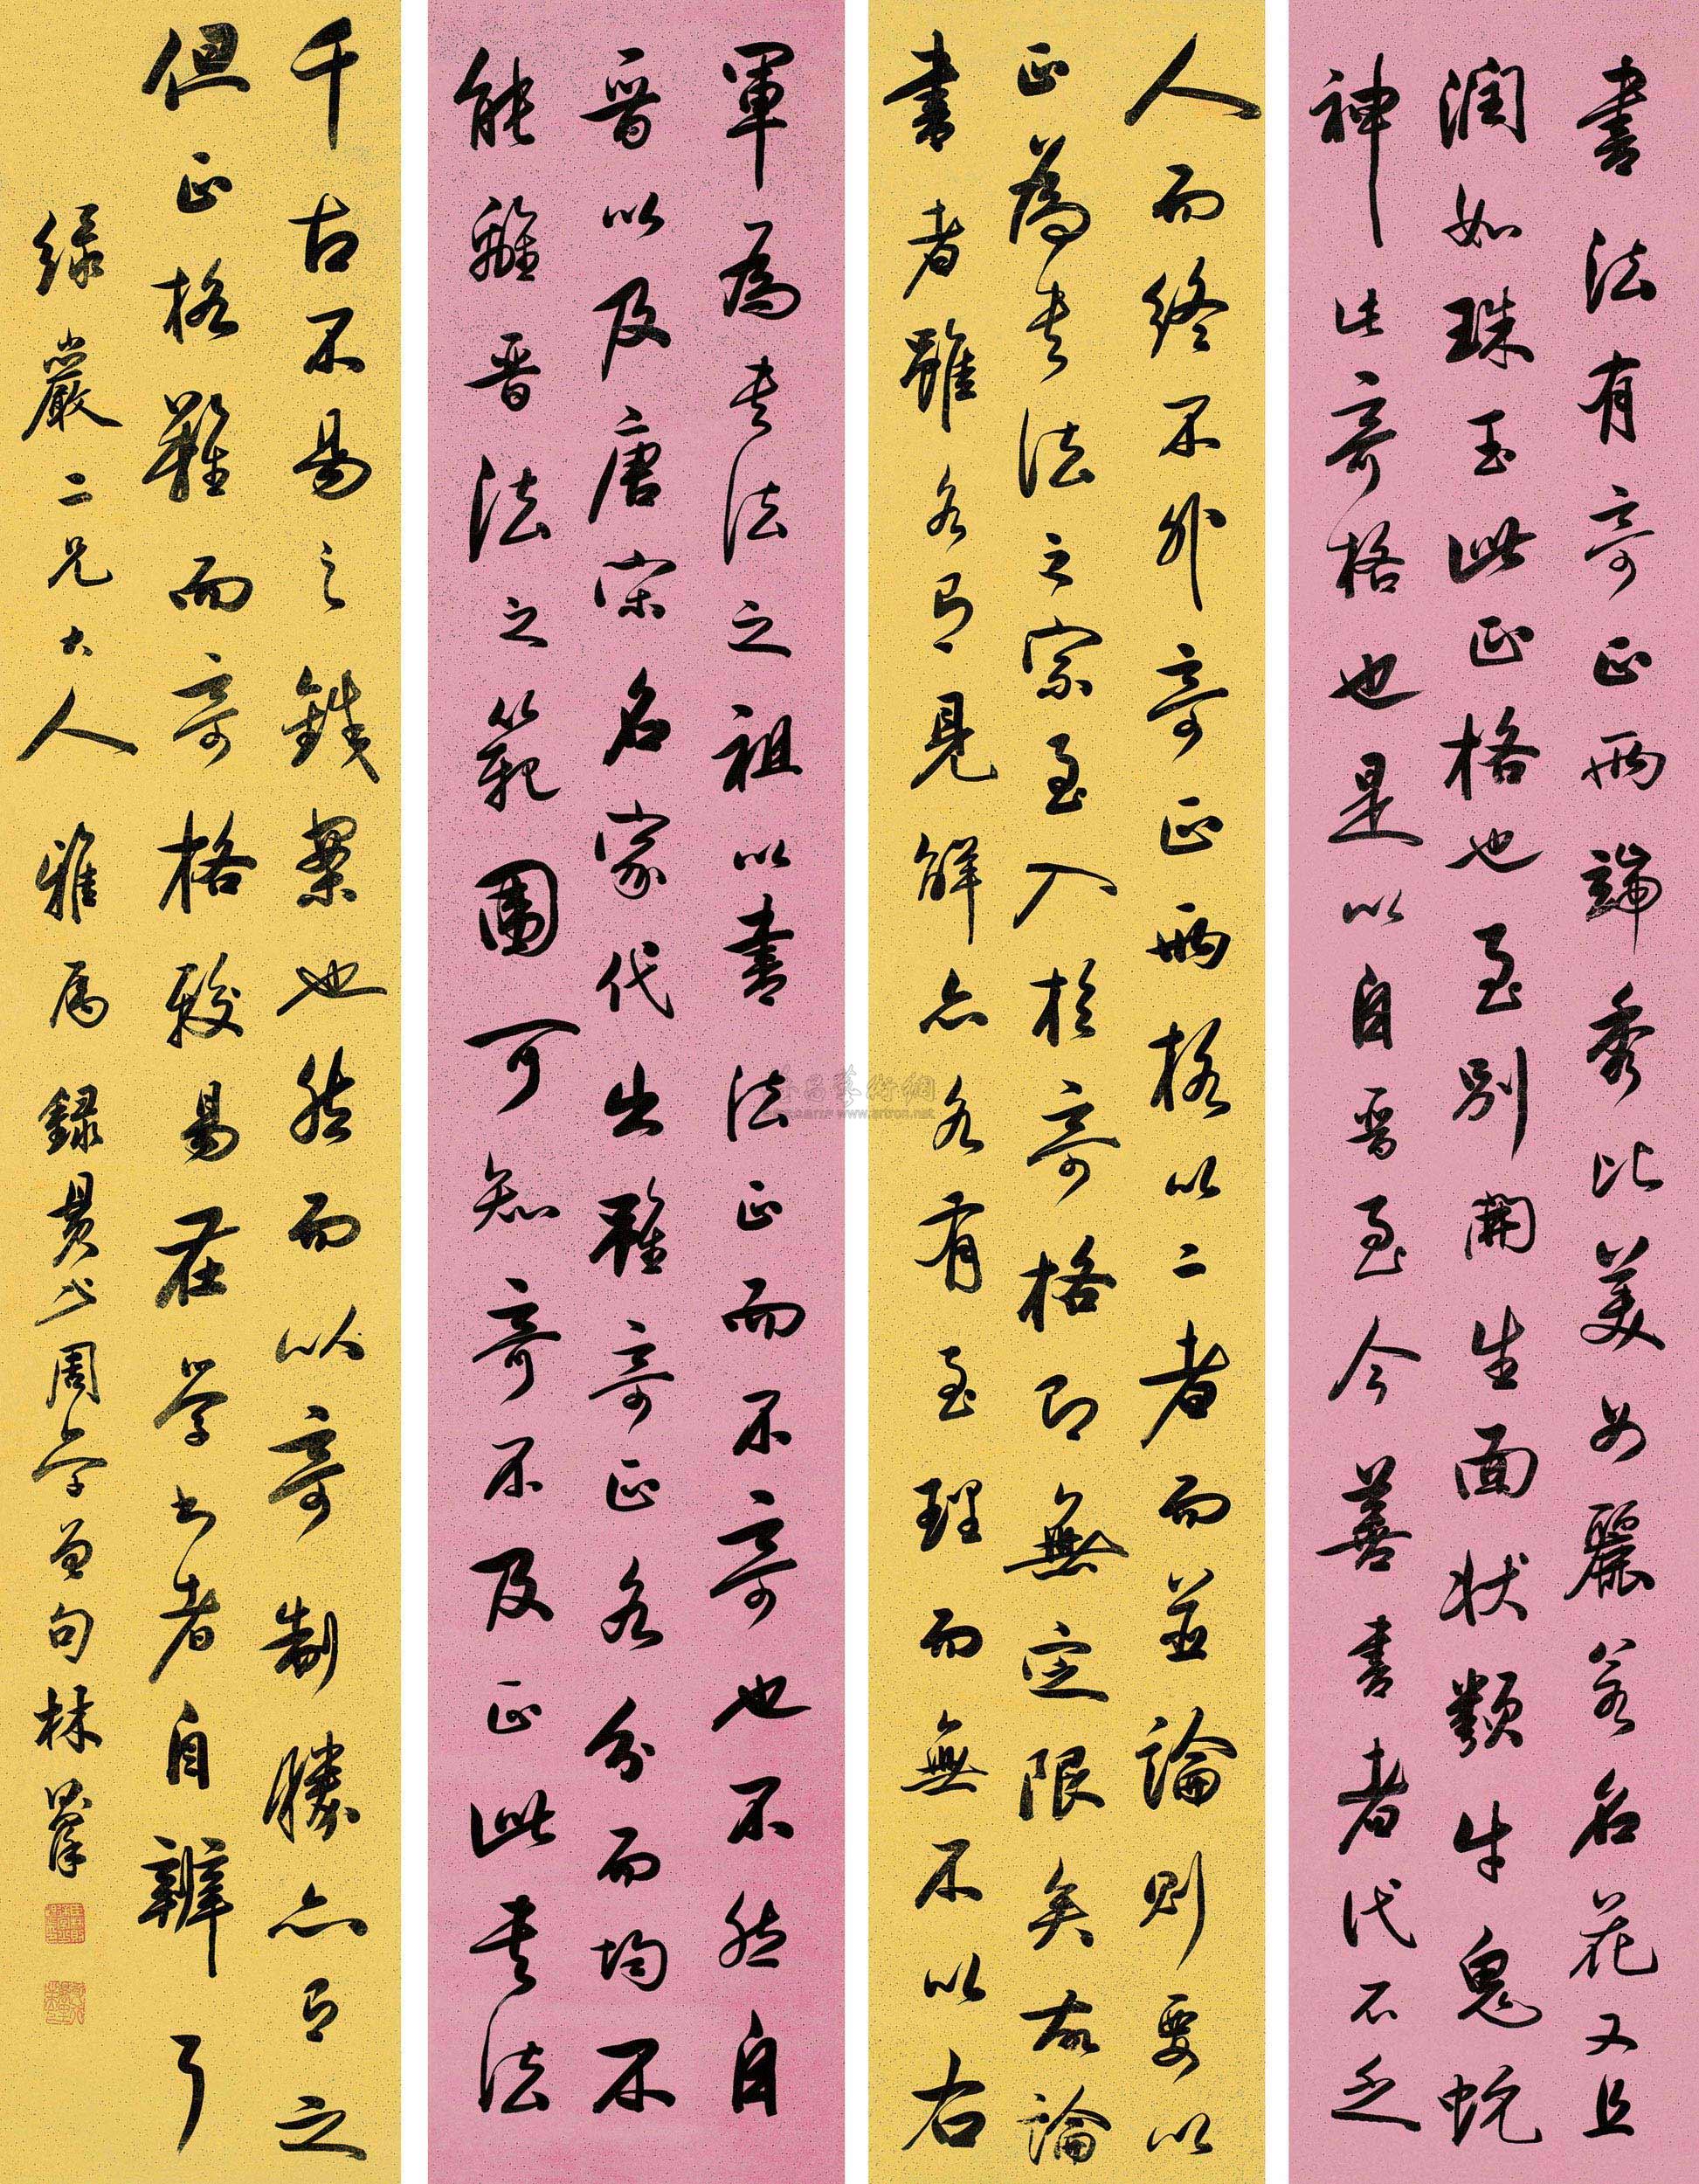 書法有奇正兩端秀比美女麗若名花又且
潤如珠玉此正格也至別開生面状類牛鬼蛇
神此奇格也是以自晋至今善書者代不乏
人而終不外奇正兩格以二者而並論則要以
正為書法之宗至入於奇格即無定限矣故論
書者雖各有見解亦各有至理而無不以右
軍為書法之祖以書法正而不奇也不然自
晋以及唐宋名家代出雖奇正各分而均不
能離晋法之範圍可知奇不及正此書法
千古不易之鐵案也然而以奇制勝亦有之
但正格難而奇格較易在學書者自辨了
緑巖二兄大人 雅属 録 周 句 林